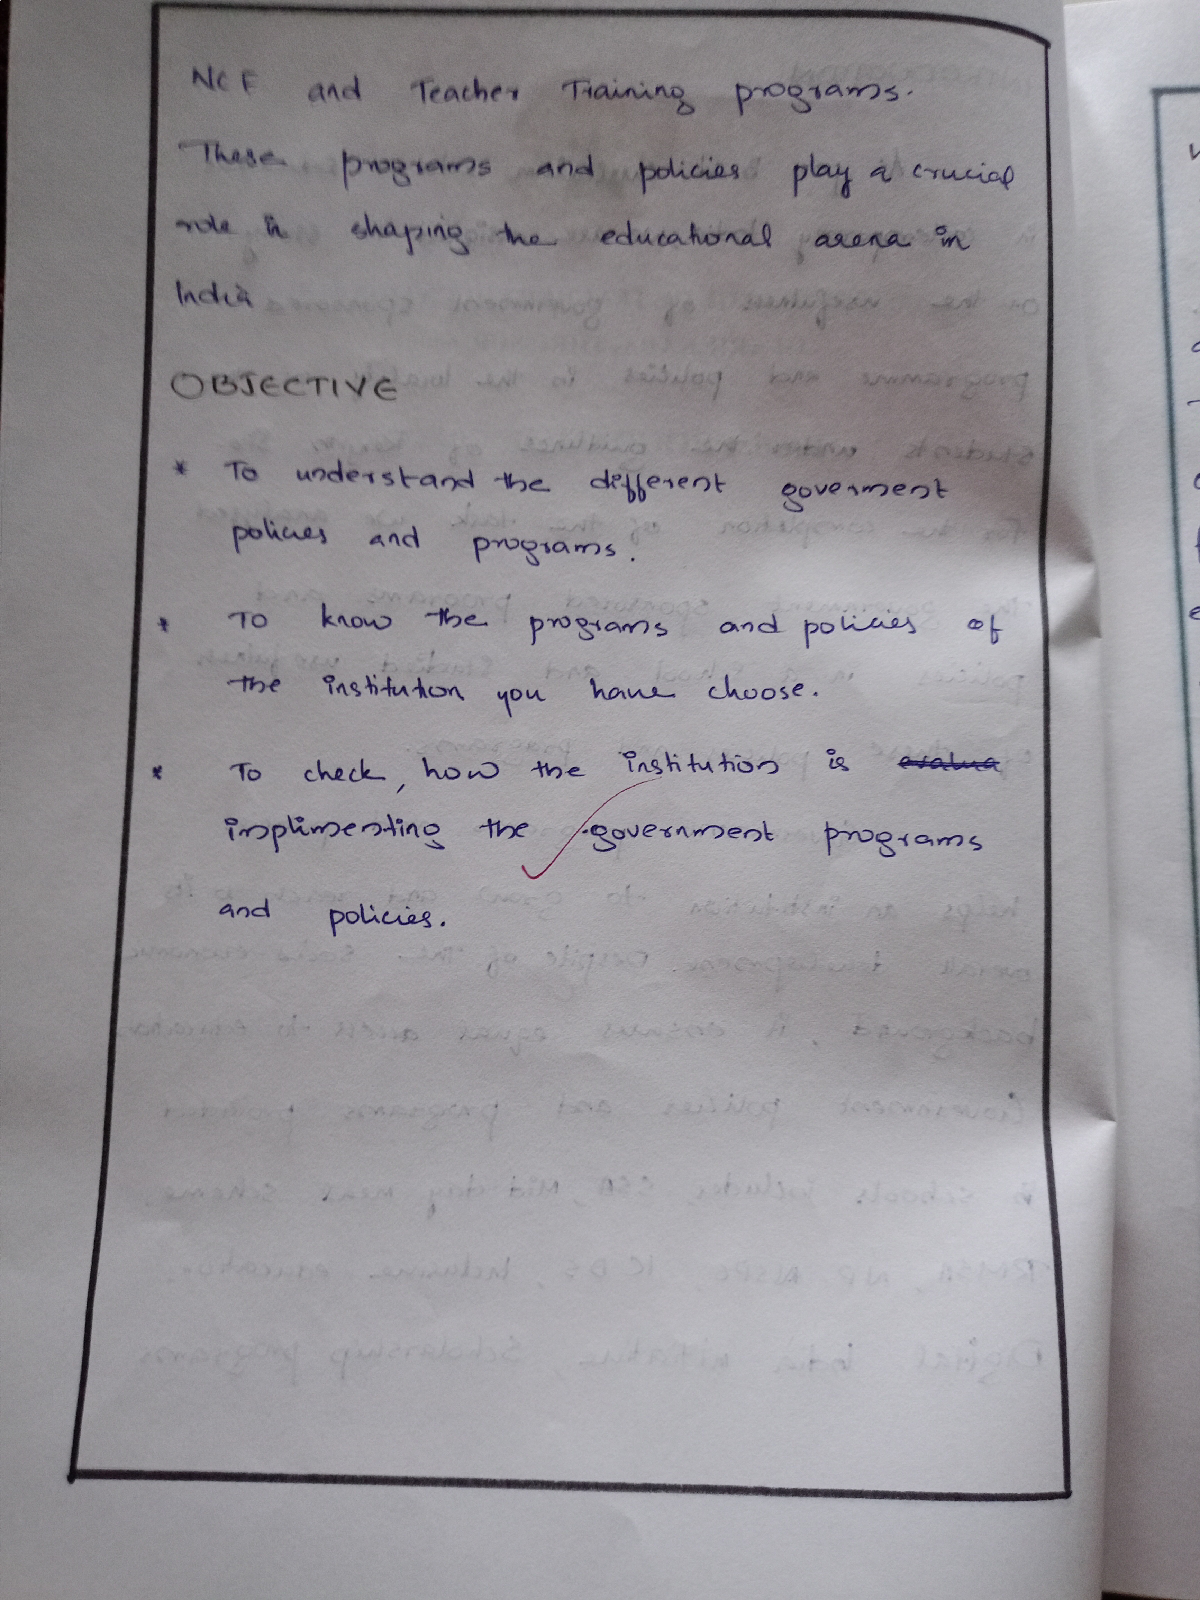 NCF and Teacher Training programs.
These programs and policies play a crucial
role in shaping the educational arena in
India
OBJECTIVE
* To understand the different goverment
policies and programs.
* To know the programs and policies of
the institution you have choose.
* To check, how the institution is evalua
implimenting the government programs
and policies.